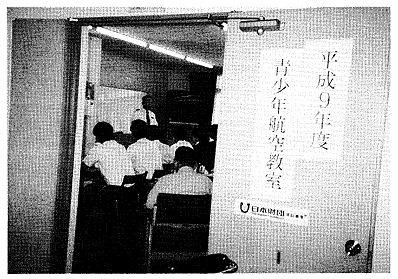 平成9年度
青少年航空教室
日本財団